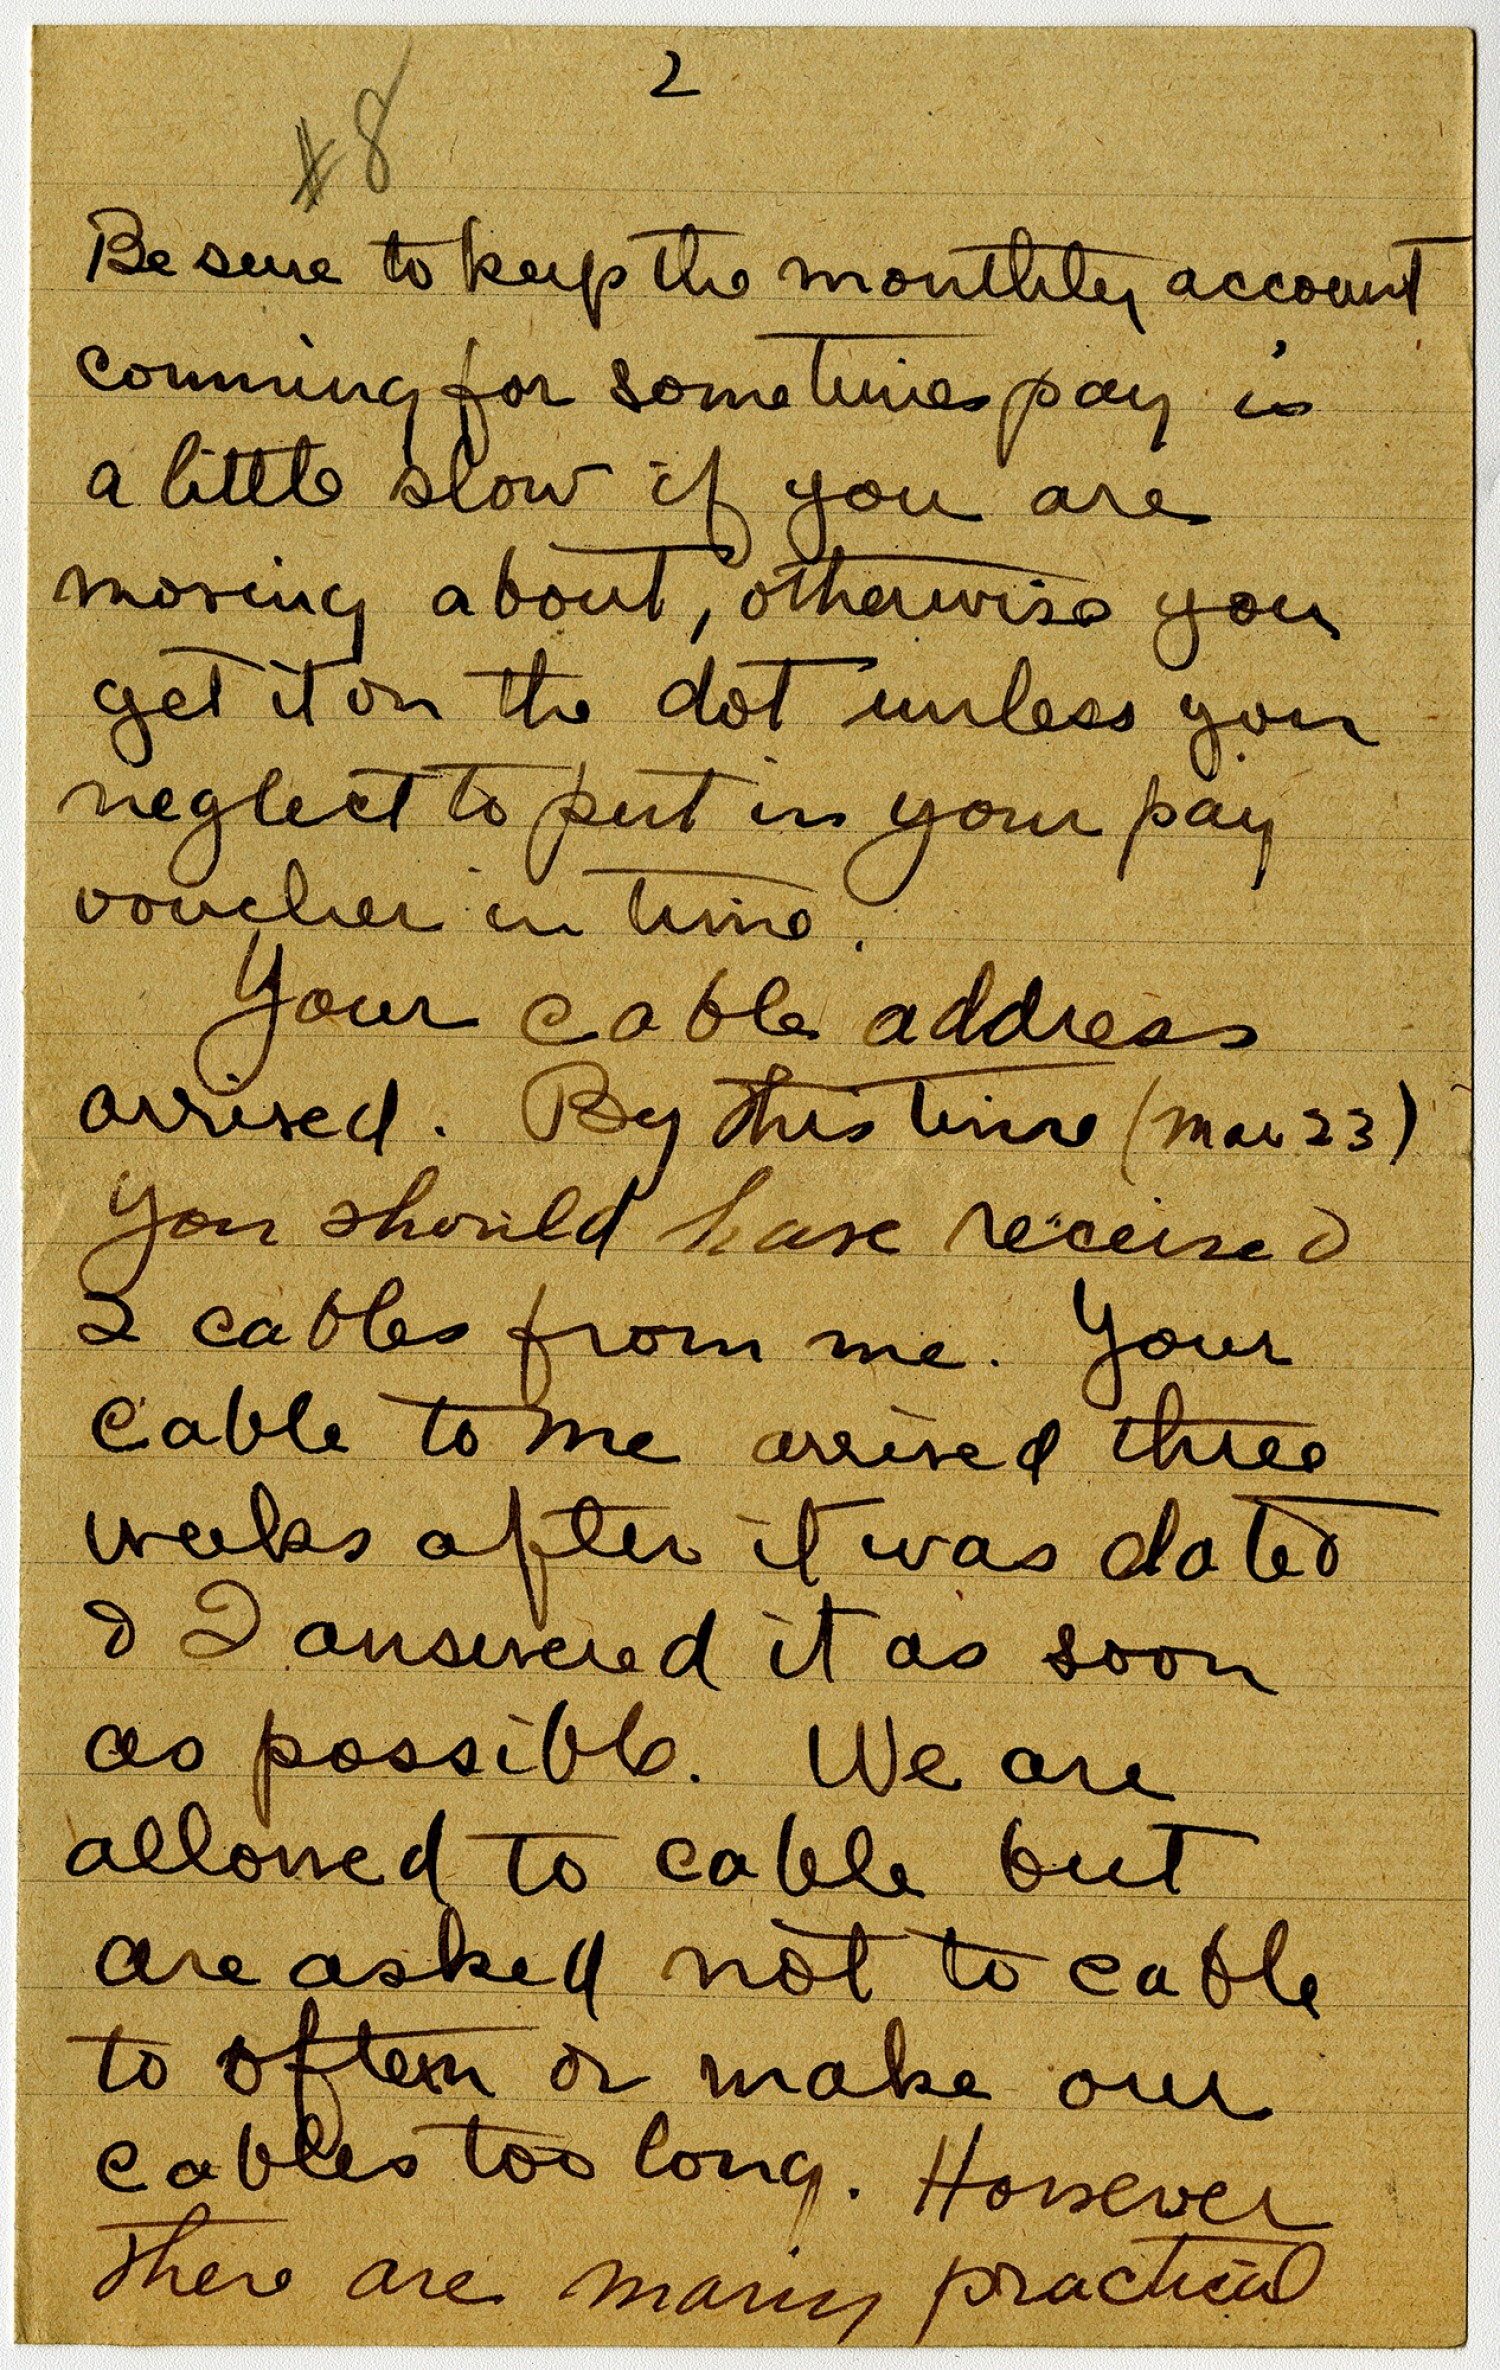 2
#8
Be sure to keep the monthly account
comming for sometimes pay is
a little slow if you are
moving about, otherwise you
get it on the dot unless you
neglect to put in your pay
voucher in time.
Your cable address
arrived. By this time (Mar 23)
you should have received
2 cables from me. Your
cable to me arrived three
weeks after it was dated
& I answered it as soon
as possible. We are
allowed to cable but
are asked not to cable
to often or make our
cables too long. However
there are many practical